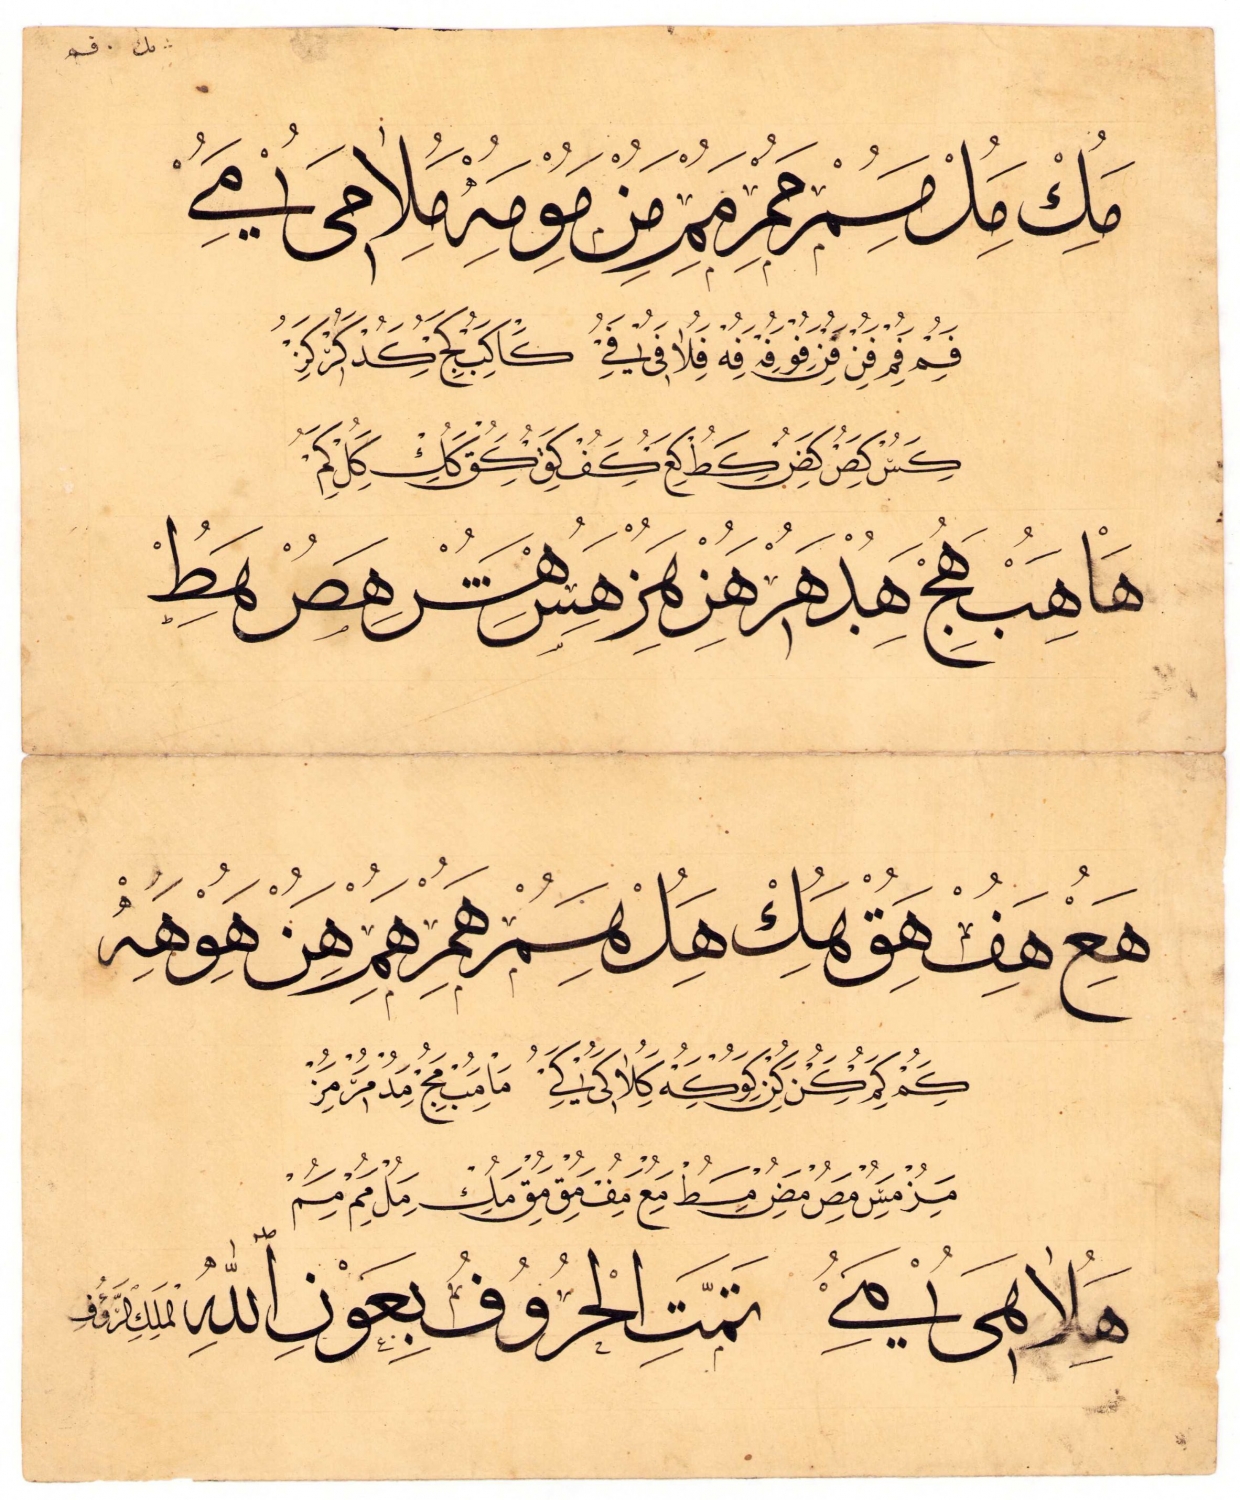 مك فم
مك مل مم ممر ممر من مو مه ملا مى ے
فم فم فن فن فو فه فه فلا فى فے كا كب كج كد كر كز
كس كص كض كط كع كف كق كق كك كل كم
ها هب هج هد هر هز هز هس هش هص هط
هع هف هق هك هل هم هم هم هن هو هه
كم كم كن كن كو كه كلا كى كے ما مب مج مد مر مز
مز مس مص مض مط مع مف مق مق مك مل مم مم
هلا هى ے تَمَّتِ الْحُرُوفُ بِعَوْنِ اللهِ الْمَلِكِ الرَّؤُفِ